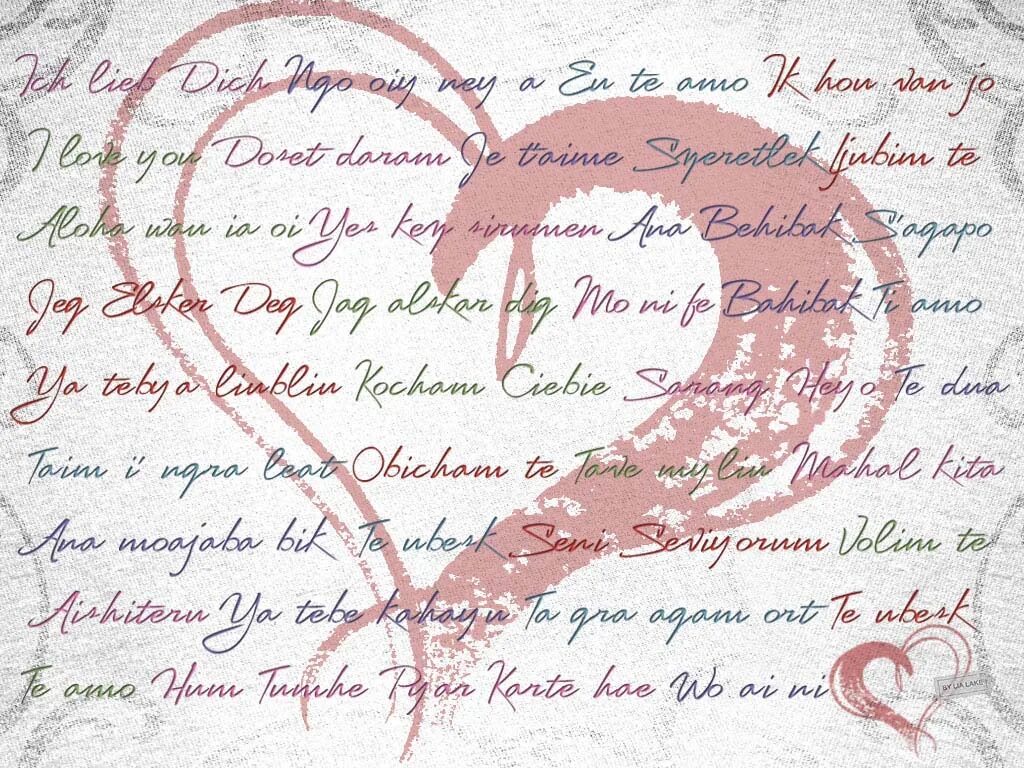 Ich lieb Dich Ngo oiy ney a Eu te amo Ik hou van jo
I love you Doset daram Je t'aime Syeretlek ljubim te
Aloha wau ia oi Yes key sirumen Ana Behibak S'agapo
Jeg Elsker Deg Jag alskar dig Mo ni fe Bahibak Ti amo
Ya tebya liubliu Kocham Ciebie Sarang Heyo Te dua
Taim i' ngra leat Obicham te Tave myliu Mahal kita
Ana moajaba bik Te ubesk Seni Seviyorum Volim te
Aishiteru Ya tebe kahayu Ta gra agam ort Te ubesk
Te amo Hum Tumhe Pyar Karte hae Wo ai ni
BY LIA LAKE